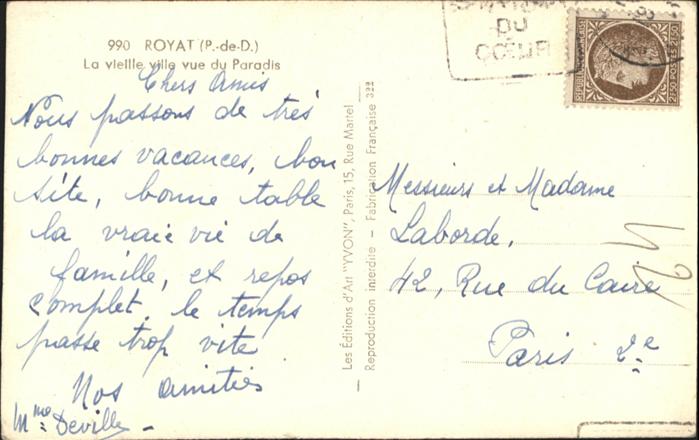 990 ROYAT (P.-de-D.)
La vieille ville vue du Paradis
Chers Amis
Nous passons de très
bonnes vacances, bon
site, bonne table
la vraie vie de
famille, et repos
complet. le temps
passe trop vite
Nos amitiés
Mme Deville -
Les Editions d'Art "YVON", Paris, 15, Rue Martel
Reproduction Interdite - Fabrication Française 322
DU
CŒUR
2F50 POSTES 2F50
Messieurs et Madame
Laborde,
42, Rue du Caire
Paris 2e